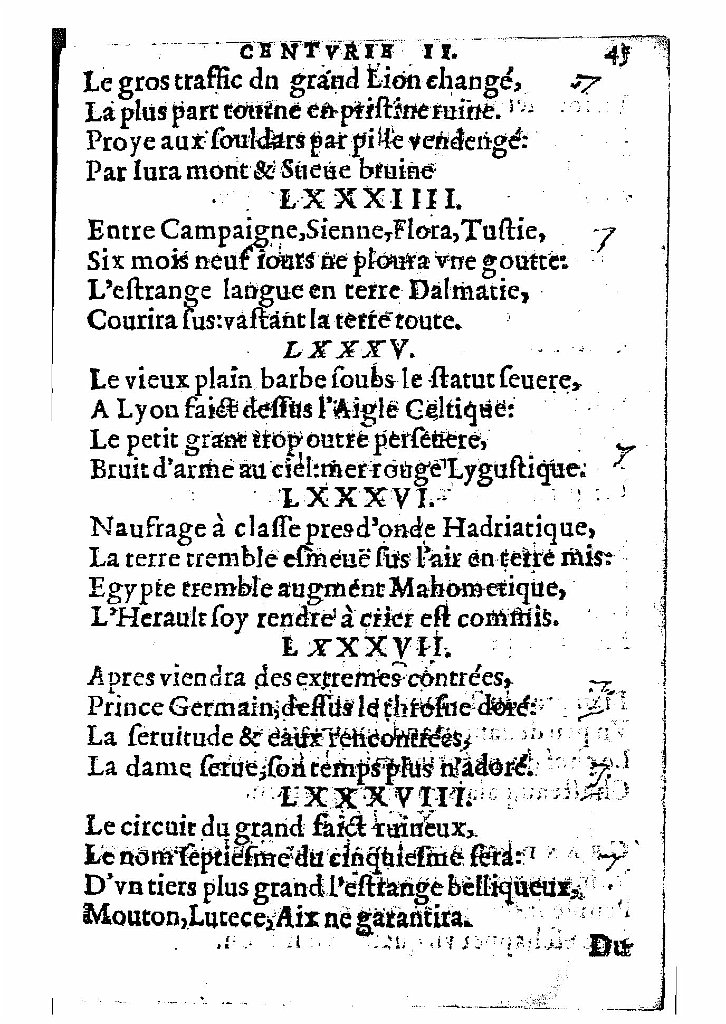 CENTVRIE II. 45
Le gros traffic du grand Lion changé,
La plus part tourne en pristine ruine.
Proye aux souldars par pille vendengé:
Par Iura mont & Sueue bruine
LXXXIIII.
Entre Campaigne, Sienne, Flora, Tustie,
Six mois neuf iours ne ploura vne goutte:
L'estrange langue en terre Dalmatie,
Courira sus: vastant la terre toute.
LXXXV.
Le vieux plain barbe soubs le statut seuere,
A Lyon faict dessus l'Aigle Celtique:
Le petit grant trop outre perseuere,
Bruit d'arme au ciel: mer rouge Lygustique.
LXXXVI.
Naufrage à classe pres d'onde Hadriatique,
La terre tremble esmeuë sus l'air en terre mis:
Egypte tremble augment Mahometique,
L'Herault soy rendre à crier est commis.
LXXXVII.
Apres viendra des extremes contrées,
Prince Germain, dessus le throsne doré:
La seruitude & eaux rencontrées,
La dame serue, son temps plus n'adoré.
LXXXVIII.
Le circuit du grand faict ruineux,
Le nom septiesme du cinquiesme sera:
D'vn tiers plus grand l'estrange belliqueux,
Mouton, Lutece, Aix ne garantira.
Du